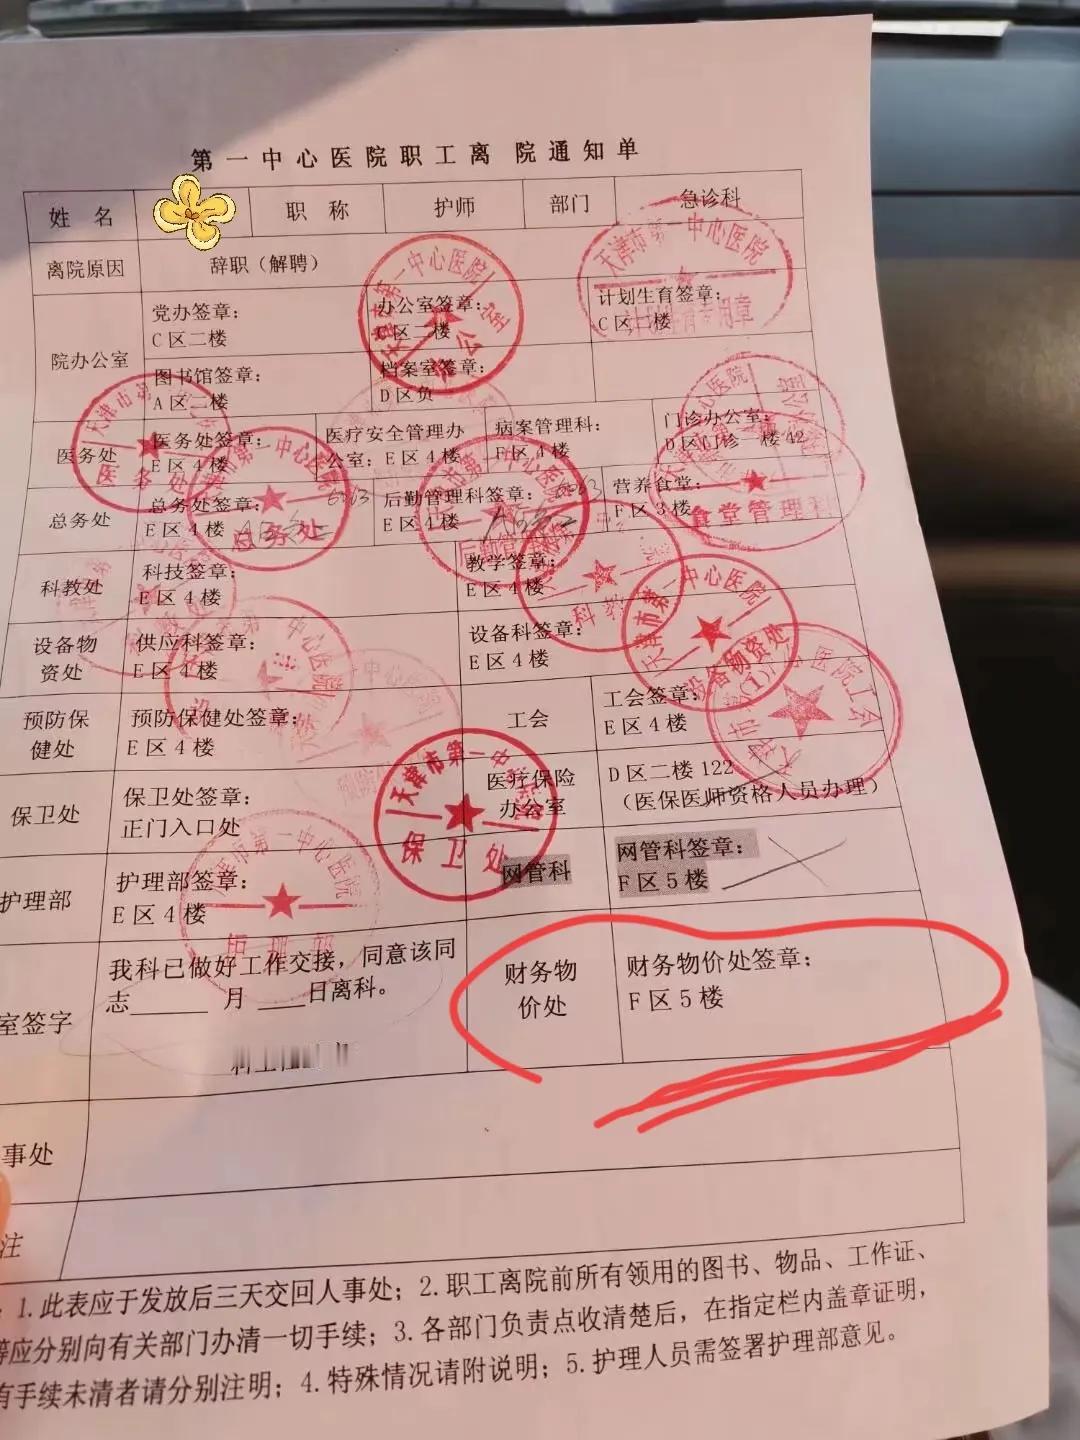 第一中心医院职工离院通知单
姓 名 职 称 护师 部门 急诊科
离院原因 辞职（解聘）
院办公室
党办签章：
C区二楼
办公室签章：
区二楼
计划生育签章：
C区二楼
图书馆签章：
A区二楼
档案室签章：
D区负
医务处
医务处签章：
E区4楼
医疗安全管理办
公室：E区4楼
病案管理科：
F区4楼
门诊办公室：
D区门诊一楼42
总务处
总务处签章：
E区4楼
后勤管理科签章：
E区4楼
营养食堂：
F区3楼
科教处
科技签章：
E区4楼
教学签章：
E区4楼
设备物
资处
供应科签章：
E区4楼
设备科签章：
E区4楼
预防保
健处
预防保健处签章：
E区4楼
工会
工会签章：
E区4楼
保卫处
保卫处签章：
正门入口处
医疗保险
办公室
D区二楼122
（医保医师资格人员办理）
护理部
护理部签章：
E区4楼
网管科
网管科签章：
F区5楼
室签字
我科已做好工作交接，同意该同
志______ 月 ____日离科。
财务物
价处
财务物价处签章：
F区5楼
事处
注
1.此表应于发放后三天交回人事处；2.职工离院前所有领用的图书、物品、工作证、
等应分别向有关部门办清一切手续；3.各部门负责点收清楚后，在指定栏内盖章证明，
有手续未清者请分别注明；4.特殊情况请附说明；5.护理人员需签署护理部意见。
天津市第一中心医院
天津市第一中心医院
医务处
天津市第一中心医院
总务处
食堂管理科
天津市第一中心医院
设备物资处
天津市第一中心医院
保卫处